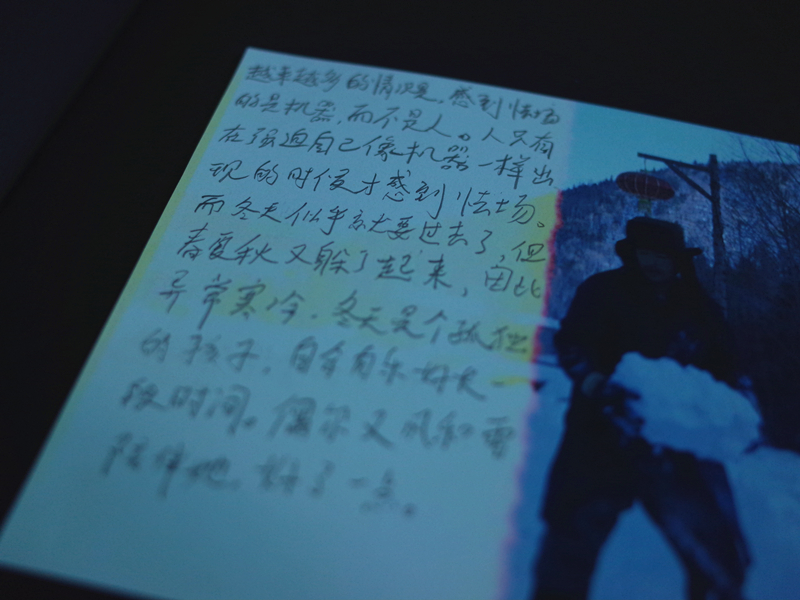 越来越多的情况是，感到怯场
的是机器，而不是人。人只有
在强迫自己像机器一样出
现的时候才感到怯场。
而冬天似乎就要过去了，但
春夏秋又躲了起来，因此
异常寒冷。冬天是个孤独
的孩子，自命自乐好长一
段时间。偶尔又风和雪
陪伴她，好了一点。